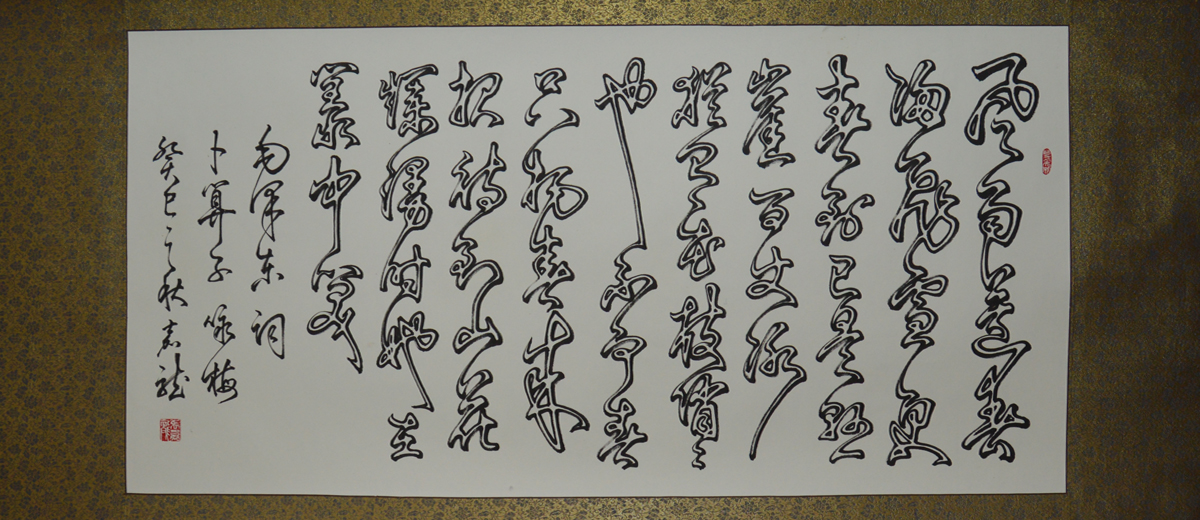 風雨送春
歸飛雪迎
春到已是懸
崖百丈冰
猶有花枝俏〻
也不争春
只把春来
报待到山花
爛漫时她在
叢中笑
毛泽东词
卜算子咏梅
癸巳之秋